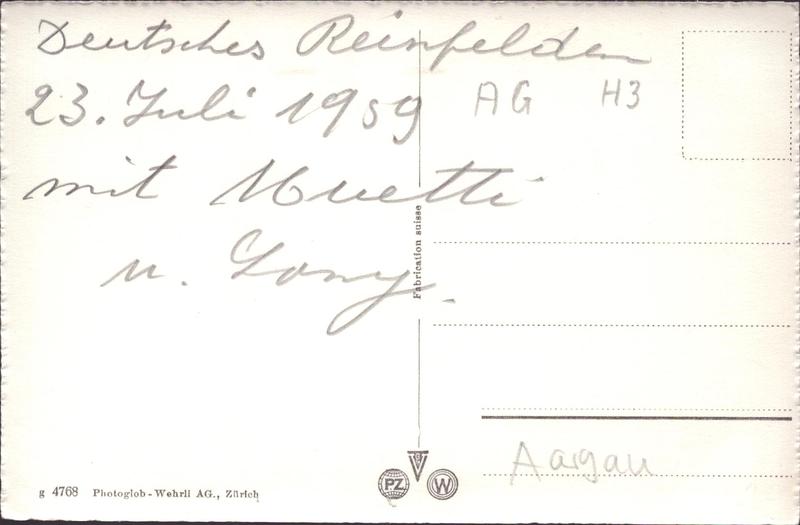 Deutsches Reinfelden
23. Juli 1959
AG H3
mit Muetti
u. Lony.
Fabrication suisse
Aargau
PZ
W
g 4768 Photoglob-Wehrli AG., Zürich